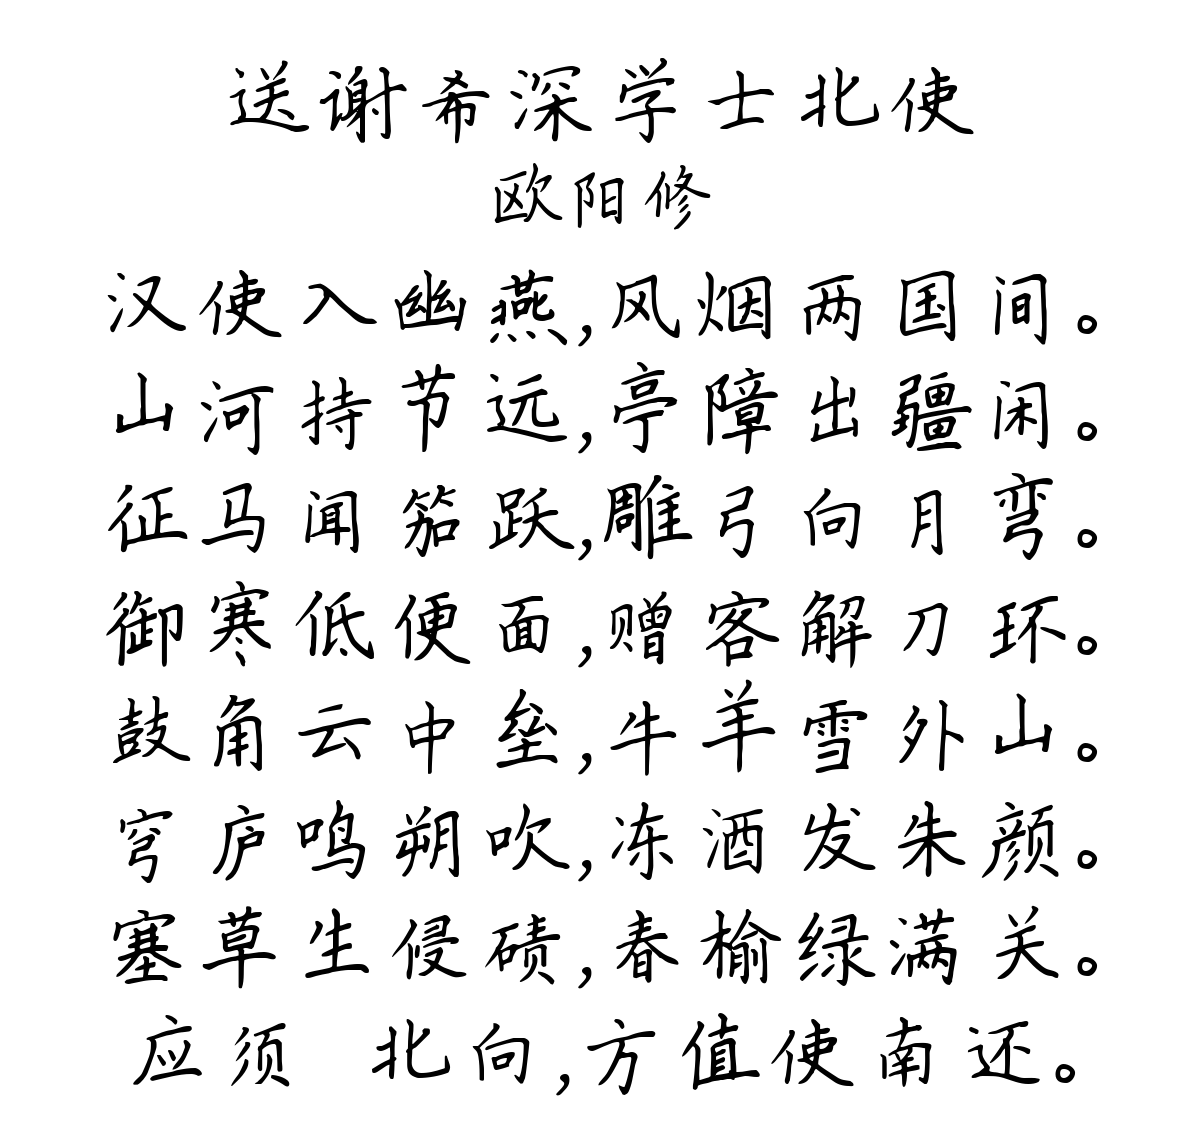 送谢希深学士北使
欧阳修
汉使入幽燕,风烟两国间。
山河持节远,亭障出疆闲。
征马闻笳跃,雕弓向月弯。
御寒低便面,赠客解刀环。
鼓角云中垒,牛羊雪外山。
穹庐鸣朔吹,冻酒发朱颜。
塞草生侵碛,春榆绿满关。
应须 北向,方值使南还。